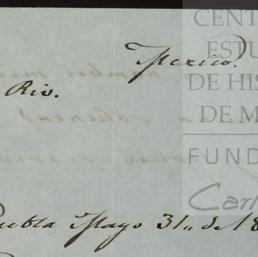 CENT
ESTU
DE HIS
DE M
FUND
Carl
Mexico.
Rio.
Puebla Mayo 31,, de 18